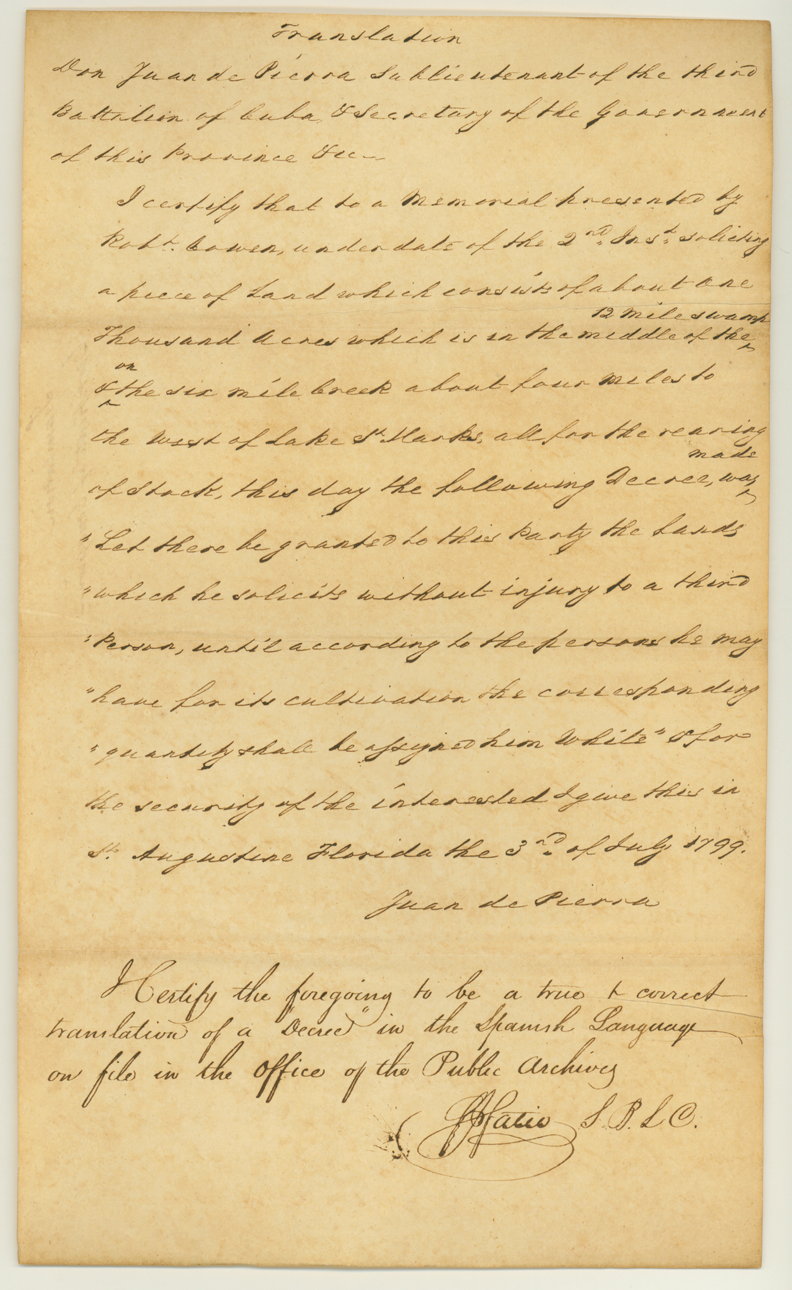 Translation
Don Juan de Pierra Sublieutenant of the third
Battalion of Cuba & Secretary of the Government
of this Province &c—
I certify that to a Memorial presented by
Robt. Cowen, under date of the 2nd. Inst. soliciting
a piece of Land which consists of about one
12 mile swamp
Thousand Acres which is in the middle of the ^
on
& ^ the six mile Creek about four Miles to
the West of Lake St. Marks, all for the rearing
made
of Stock, this day the following Decree, was ^
"Let there be granted to this Party the Lands
"which he solicits without injury to a third
"Person, until according to the persons he may
"have for its cultivation the corresponding
"quantity shall be assigned him White" & for
the security of the interested I give this in
St. Augustine Florida the 3rd. of July 1799.
Juan de Pierra
I Certify the foregoing to be a true & correct
translation of a "Decree" in the Spanish Language
on file in the Office of the Public Archives
S. B. L C.